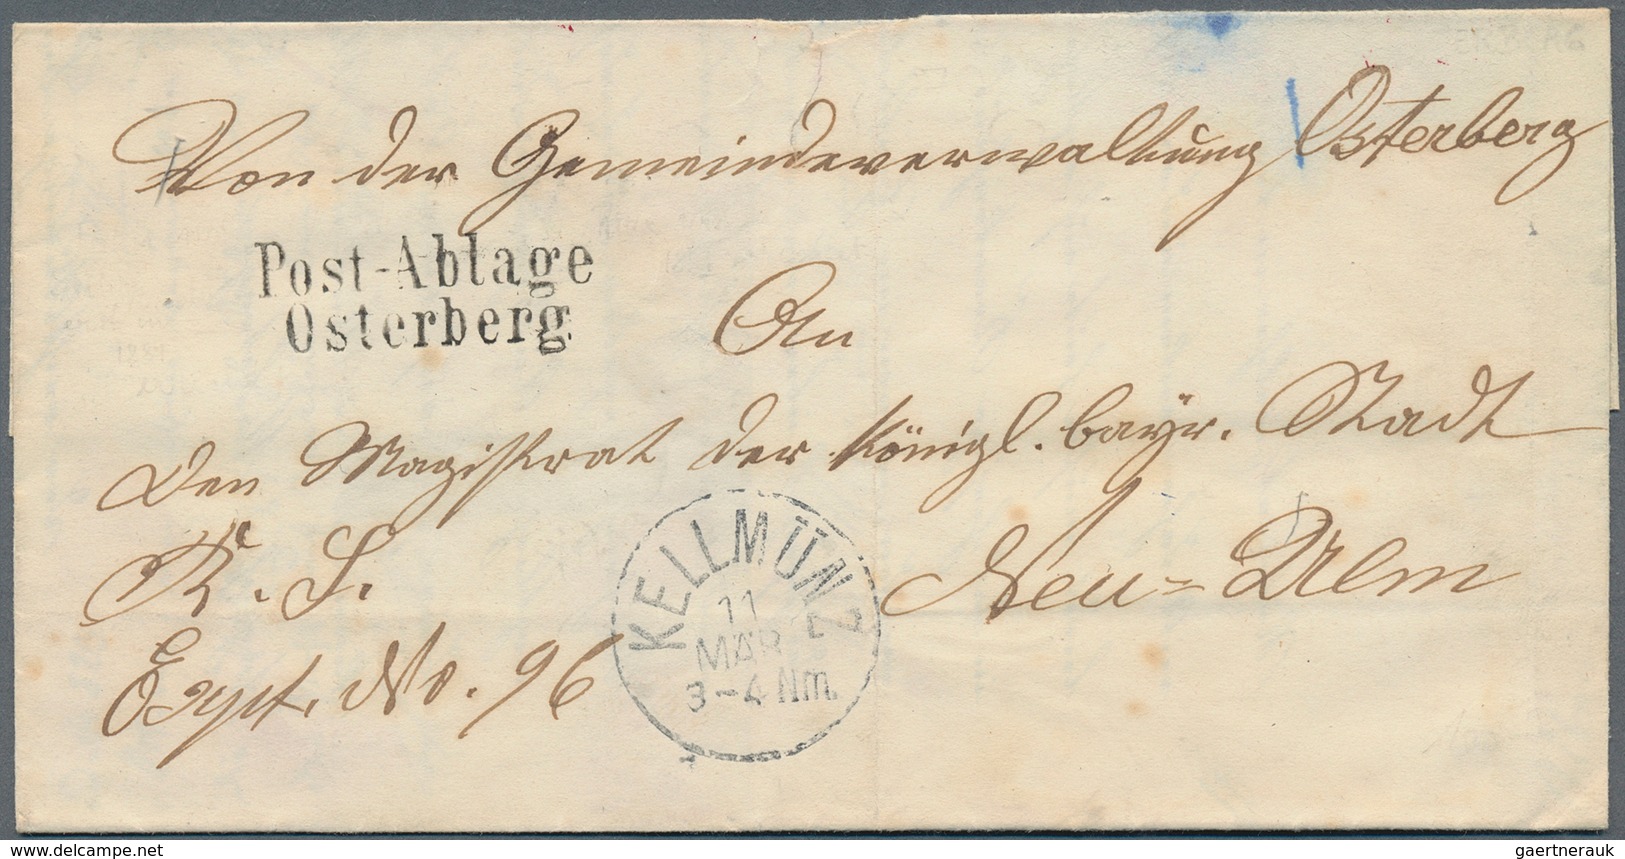 Von der Gemeindeverwaltung Osterberg
Post-Ablage
Osterberg
An
den Magistrat der königl. bayr. Stadt
Neu-Ulm
R. S.
Expt. No. 96
KELLMÜNZ
11
MÄR
3-4 Nm.
www.delcampe.net
gaertnerauk